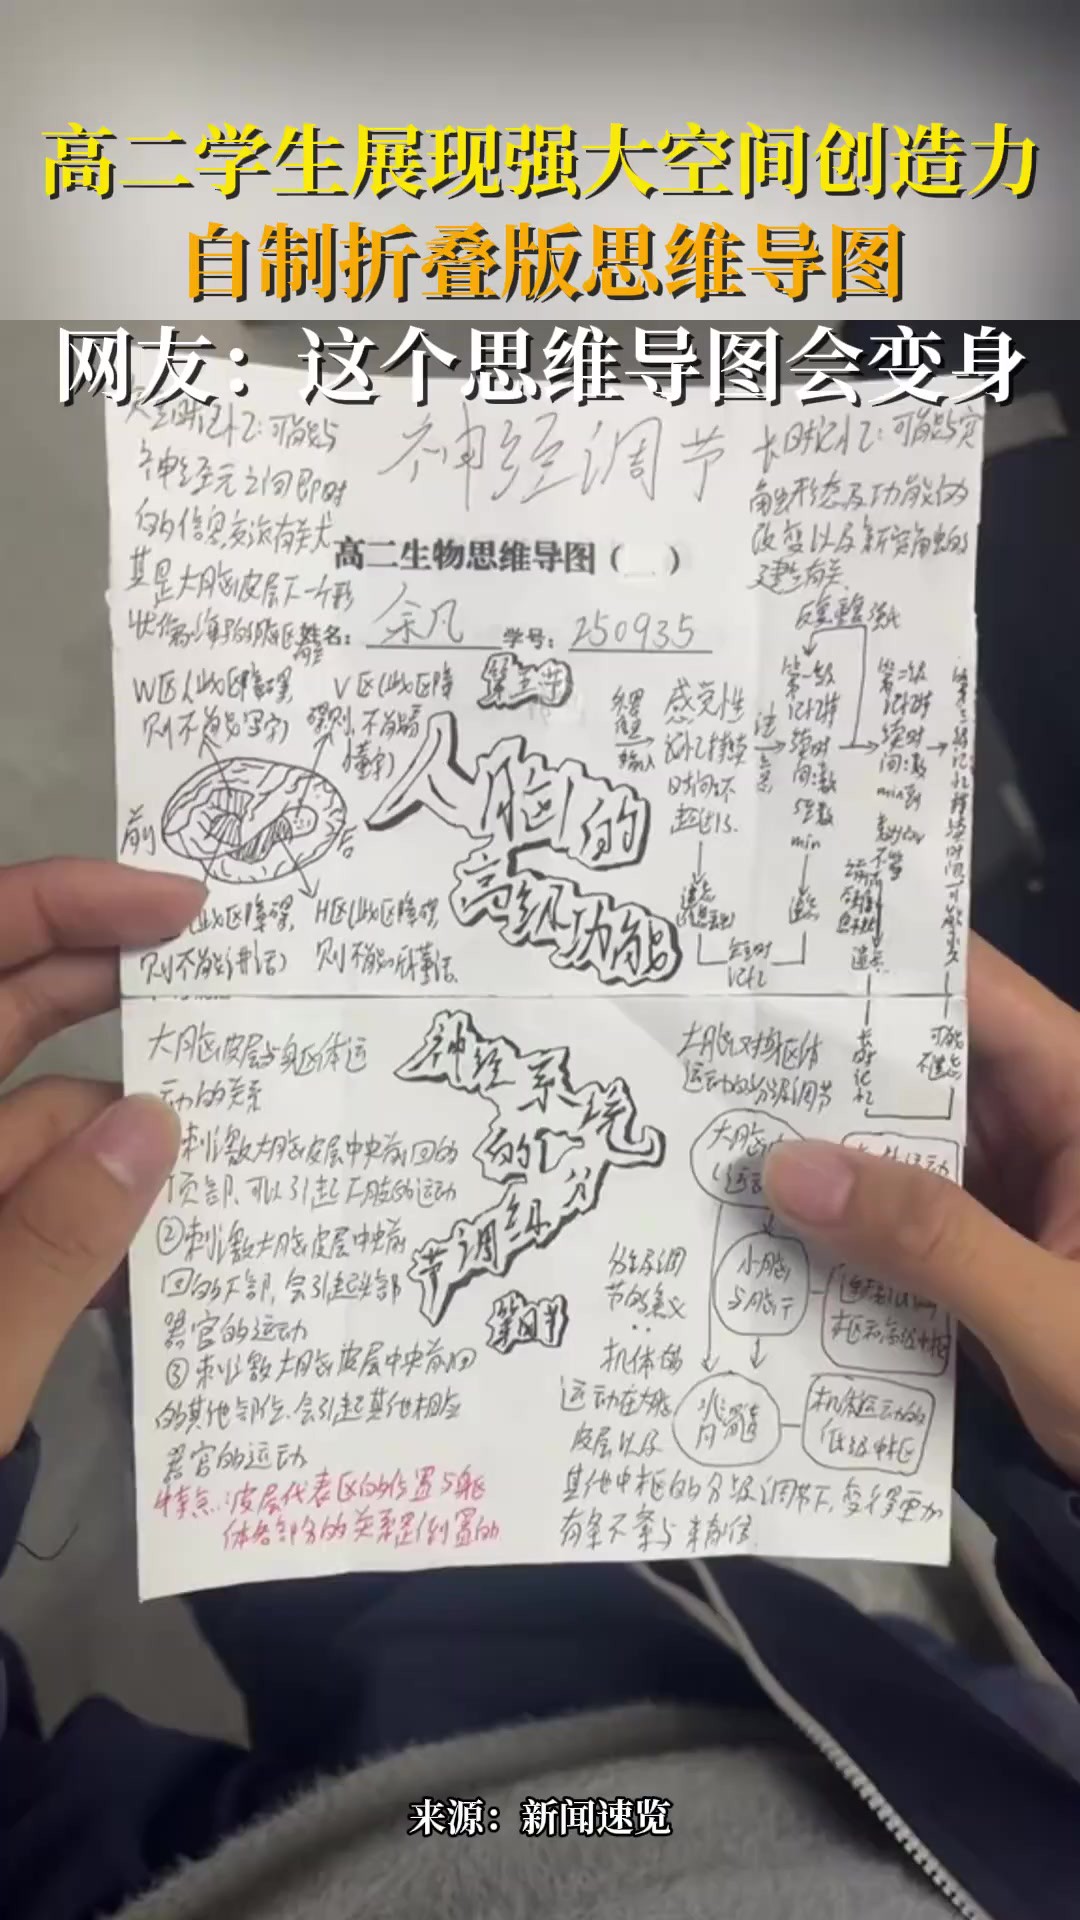 高二学生展现强大空间创造力
自制折叠版思维导图
网友：这个思维导图会变身
神经调节
高二生物思维导图（ ）
姓名：余凡 学号：250935
短时记忆：可能与
神经元之间即时
的信息交流有关尤
其是大脑皮层下一个形
状像海马的脑区有关
长时记忆：可能与突
触形态及功能的
改变以及新突触的
建立有关
W区（此区障碍，
则不能写字）
V区（此区障
碍则不能看
懂字）
前
后
此区障碍，
则不能讲话）
H区（此区障碍，
则不能听懂话
第三节
人脑的
高级功能
外界信息输入
感觉性
记忆持续
时间不
超过1s
注意
遗忘
反复重复强化
第一级
记忆持
续时
间：数
s至数
min
遗忘
短时
记忆
第二级
记忆持
续时
间：数
min到
数年
不等
遗忘
长时记忆
可能
不遗忘
大脑皮层与身体运
动的关系
刺激大脑皮层中央前回的
顶部，可以引起下肢的运动
②刺激大脑皮层中央前
回的下部，会引起头部
器官的运动
③刺激大脑皮层中央前回
的其他部位，会引起其他相应
器官的运动
特点：皮层代表区的位置与躯
体各部分的关系是倒置的
神经系统
的分级
调节
第四节
大脑对躯体
运动的分级调节
大脑
小脑
与脑干
脊髓
机体运动的
低级中枢
分级调
节的意义
：
机体的
运动在大脑
皮层以及
其他中枢的分级调节下，变得更加
有条不紊与精准
来源：新闻速览